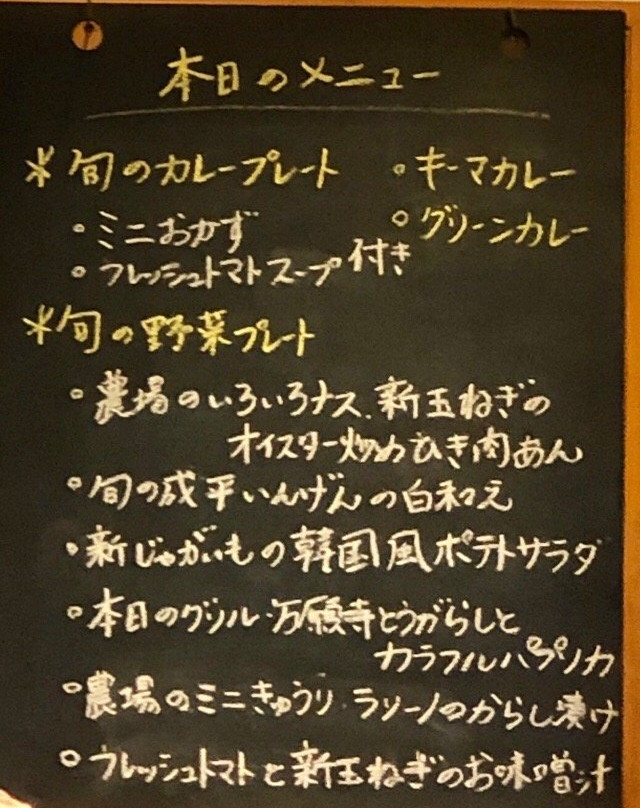 本日のメニュー
* 旬のカレープレート ・キーマカレー
・ミニおかず ○グリーンカレー
・フレッシュトマトスープ付き
* 旬の野菜プレート
○農場のいろいろナス、新玉ねぎの
オイスター炒めひき肉あん
○旬の成平いんげんの白和え
・新じゃがいもの韓国風ポテトサラダ
○本日のグリル・万願寺とうがらしと
カラフルパプリカ
○農場のミニきゅうり ラリーノのからし漬け
○フレッシュトマトと新玉ねぎのお味噌汁